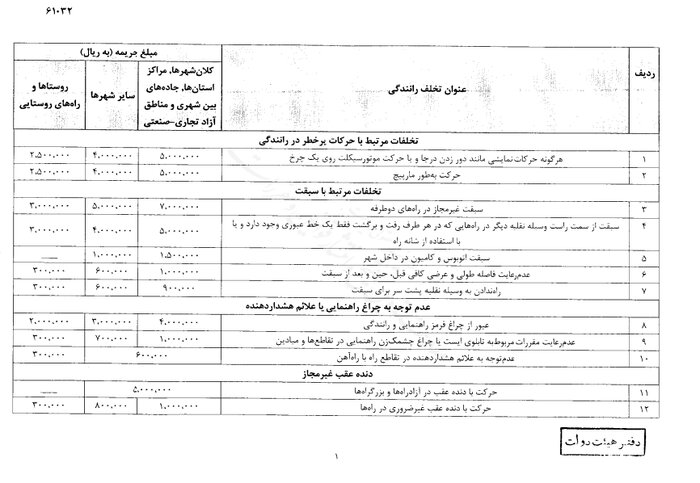 ۶۱۰۳۲
ردیف
عنوان تخلف رانندگی
مبلغ جریمه (به ریال)
کلان‌شهرها، مراکز
استان‌ها، جاده‌های
بین شهری و مناطق
آزاد تجاری-صنعتی
سایر شهرها
روستاها و
راه‌های روستایی
تخلفات مرتبط با حرکات پرخطر در رانندگی
۱ هرگونه حرکات نمایشی مانند دور زدن درجا و یا حرکت موتورسیکلت روی یک چرخ ۵,۰۰۰,۰۰۰ ۴,۰۰۰,۰۰۰ ۲,۵۰۰,۰۰۰
۲ حرکت به‌طور مارپیچ ۵,۰۰۰,۰۰۰ ۴,۰۰۰,۰۰۰ ۲,۵۰۰,۰۰۰
تخلفات مرتبط با سبقت
۳ سبقت غیرمجاز در راه‌های دوطرفه ۷,۰۰۰,۰۰۰ ۵,۰۰۰,۰۰۰ ۳,۰۰۰,۰۰۰
۴ سبقت از سمت راست وسیله نقلیه دیگر در راه‌هایی که در هر طرف رفت و برگشت فقط یک خط عبوری وجود دارد و یا
با استفاده از شانه راه ۵,۰۰۰,۰۰۰ ۴,۰۰۰,۰۰۰ ۳,۰۰۰,۰۰۰
۵ سبقت اتوبوس و کامیون در داخل شهر ۱,۵۰۰,۰۰۰ ۱,۰۰۰,۰۰۰ ـــــ
۶ عدم‌رعایت فاصله طولی و عرضی کافی قبل، حین و بعد از سبقت ۱,۰۰۰,۰۰۰ ۶۰۰,۰۰۰ ۳۰۰,۰۰۰
۷ راه‌ندادن به وسیله نقلیه پشت سر برای سبقت ۹۰۰,۰۰۰ ۶۰۰,۰۰۰ ۳۰۰,۰۰۰
عدم توجه به چراغ راهنمایی یا علائم هشداردهنده
۸ عبور از چراغ قرمز راهنمایی و رانندگی ۴,۰۰۰,۰۰۰ ۳,۰۰۰,۰۰۰ ۲,۰۰۰,۰۰۰
۹ عدم‌رعایت مقررات مربوط‌به تابلوی ایست یا چراغ چشمک‌زن راهنمایی در تقاطع‌ها و میادین ۱,۰۰۰,۰۰۰ ۷۰۰,۰۰۰ ۳۰۰,۰۰۰
۱۰ عدم‌توجه به علائم هشداردهنده در تقاطع راه با راه‌آهن ۶۰۰,۰۰۰ ۳۰۰,۰۰۰
دنده عقب غیرمجاز
۱۱ حرکت با دنده عقب در آزادراه‌ها و بزرگراه‌ها ۵,۰۰۰,۰۰۰ ـــــ
۱۲ حرکت با دنده عقب غیرضروری در راه‌ها ۱,۰۰۰,۰۰۰ ۸۰۰,۰۰۰ ۳۰۰,۰۰۰
دفتر هیئت دولت
۱